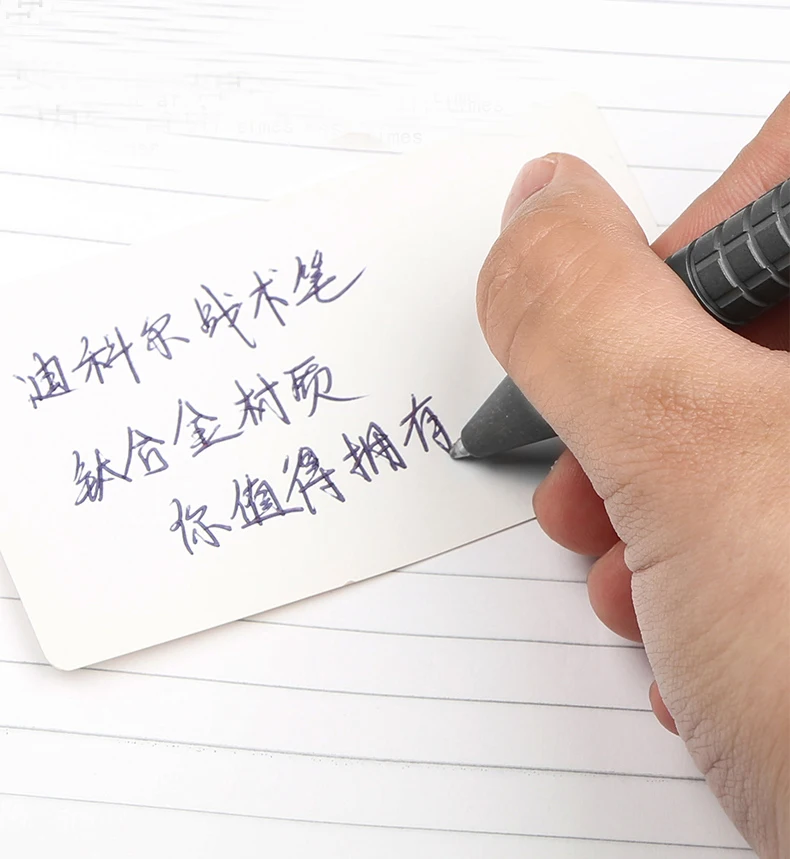 迪科尔战术笔
钛合金材质
你值得拥有